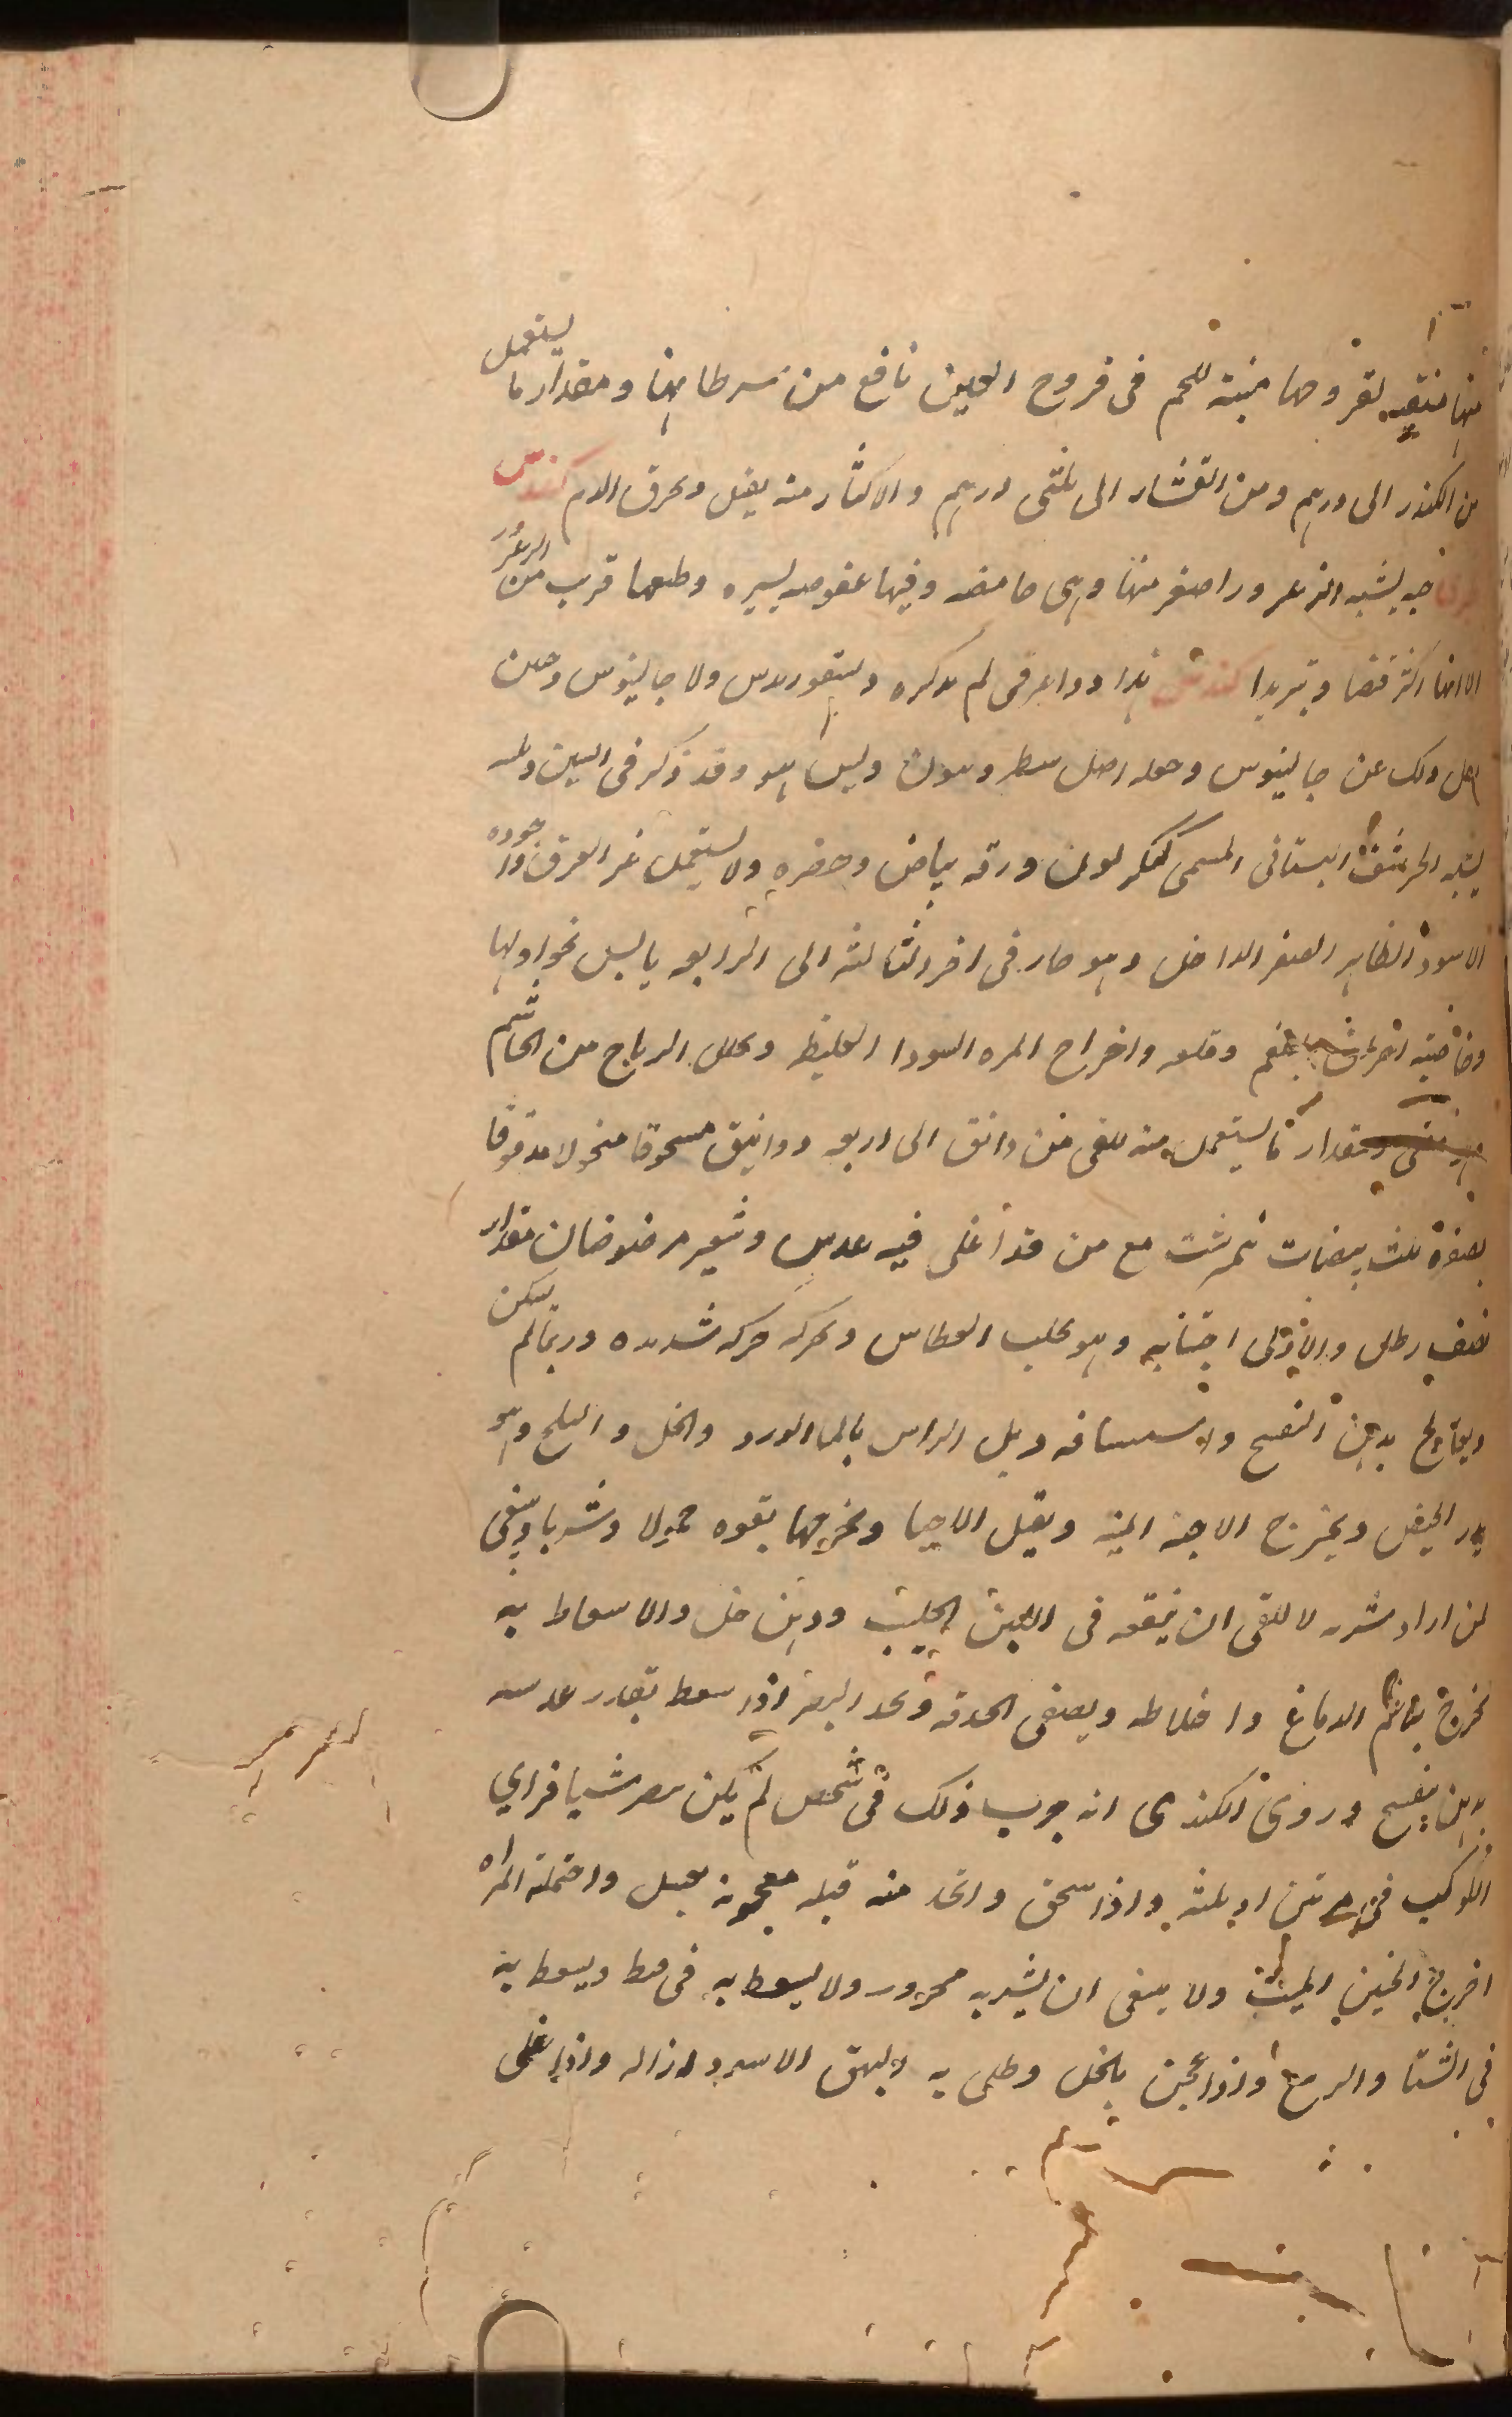 منها منقيه لقروحها منبته للحم فى قروح العين نافع من سرطانها ومقدار ما يستعمل
من الكندر الى درهم ومن القشار الى ثلثى درهم والاكثار منه يقتل ويحرق الدم كندس
حبه يشبه الزعرور اصغر منها وهى حامضه وفيها عفوصه يسيره وطعمها قريب من الزعرور
الا انها اكثر قبضا وتبريدا كندس هذا دوا عرفى لم يذكره ديسقوريدس ولا جالينوس وحين
ذلك عن جالينوس وجعله اصل سطروسون وليس هو وقد ذكر فى السين
يشبه الحرشف البستانى المسمى كنكر لون ورقه بياض وخضره ولا يستعمل غير العرق واجوده
الاسود الظاهر الصفر الداخل وهو حار فى اخر الثالثه الى الرابعه يابس نحو اولها
وخاصيته بلغم وقلعه واخراج المره السودا الغليظه ويحلل الرياح من الخياشيم
ومقدار ما يستعمل منه للقى من دانق الى اربعه دوانيق مسحوقا منخولا مدقوقا
بصفرة ثلث بيضات نمرشت مع من قد اغلى فيه عدس وشعير مرضوضان مقدار
نصف رطل والاولى اجتنابه وهو يجلب العطاس ويحركه حركه شديده وربما لم يسكن
ويعالج بدهن البنفسج واستنشاقه وبل الراس بالما الورد والخل والثلج وهو
يدر الحيض ويخرج الاجنه الميته ويقتل الاحيا ويخرجها بقوه حمولا وشربا وينبغى
لمن اراد شربه للقى ان ينقعه فى اللبن الحليب ودهن خل والاسعاط به
يخرج بلاغم الدماغ واخلاطه ويصفى الحدقه ويحد البصر اذا سعط بقدر عدسه
بدهن بنفسج وروى الكندى انه جرب ذلك فى شخص لم يكن يبصر شيا فراى
الكوكب فى مرتين او ثلثه واذا سحق واتخذ منه فتيله معجونه بعسل واحتملته المراه
اخرج الجنين الميت ولا ينبغى ان يشربه محرور ولا يسعط به فى ويسعط به
فى الشتا والربيع واذا عجن بالخل وطلى به البهق الاسود ازاله واذا غلى